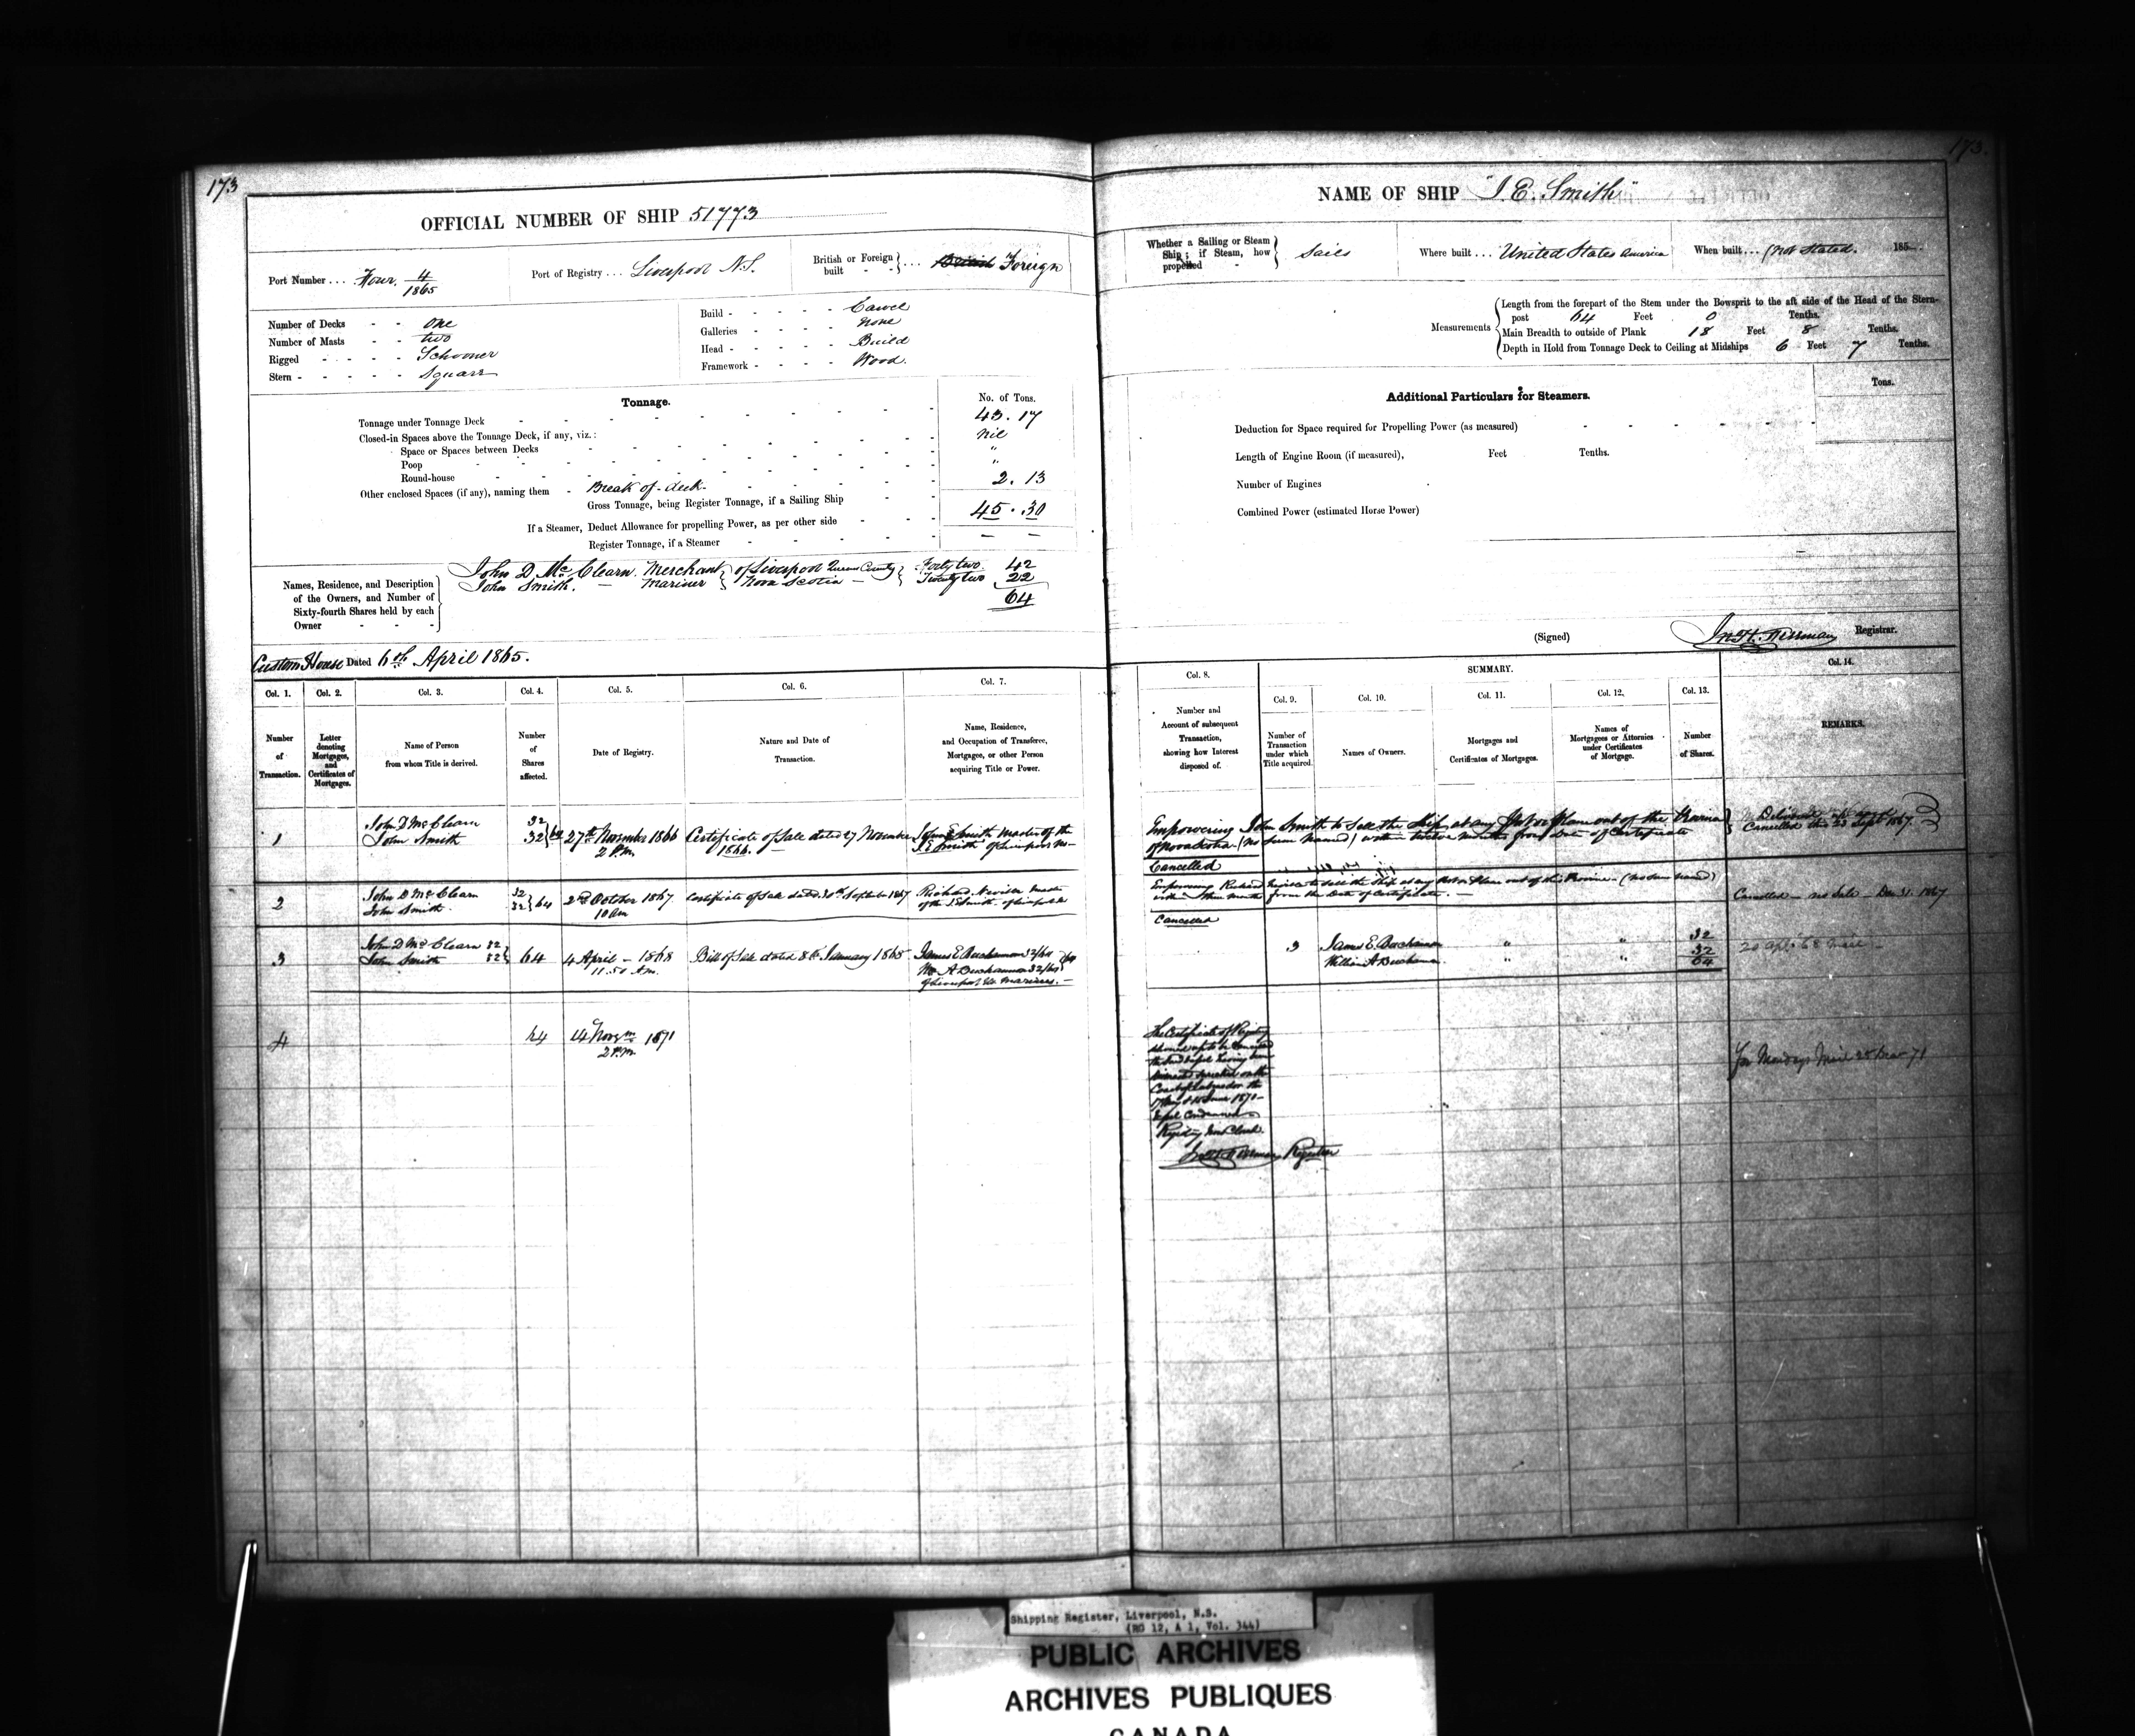 173
173.
OFFICIAL NUMBER OF SHIP 51773
Port Number . . . Four. 4/1865
Port of Registry . . . Liverpool N.S.
British or Foreign built - - } . . . British Foreign
Number of Decks - - One
Number of Masts - - two
Rigged - - - - Schooner
Stern - - - - - Square
Build - - - - - Carvel
Galleries - - - - None
Head - - - - - Build
Framework - - - - Wood.
Tonnage.
No. of Tons.
Tonnage under Tonnage Deck 43.17
Closed-in Spaces above the Tonnage Deck, if any, viz.: nil
Space or Spaces between Decks "
Poop "
Round-house
Other enclosed Spaces (if any), naming them - Break of deck. 2.13
Gross Tonnage, being Register Tonnage, if a Sailing Ship 45.30
If a Steamer, Deduct Allowance for propelling Power, as per other side
Register Tonnage, if a Steamer — —
Names, Residence, and Description of the Owners, and Number of Sixty-fourth Shares held by each Owner
John D McClearn. Merchant } of Liverpool Queens County { Forty two. 42
John Smith. — Mariner } Nova Scotia — { Twenty two 22
64
Custom House Dated 6th April 1865.
NAME OF SHIP "J. E. Smith"
Whether a Sailing or Steam Ship; if Steam, how propelled } Sails
Where built . . . United States America
When built . . . (not Stated. 185
Measurements
Length from the forepart of the Stem under the Bowsprit to the aft side of the Head of the Stern-
post 64 Feet 0 Tenths.
Main Breadth to outside of Plank 18 Feet 8 Tenths.
Depth in Hold from Tonnage Deck to Ceiling at Midships 6 Feet 7 Tenths.
Additional Particulars for Steamers.
Tons.
Deduction for Space required for Propelling Power (as measured)
Length of Engine Room (if measured), Feet Tenths.
Number of Engines
Combined Power (estimated Horse Power)
(Signed) Registrar.
Col. 1. Col. 2. Col. 3. Col. 4. Col. 5. Col. 6. Col. 7.
Number of Transaction.
Letter denoting Mortgages, and Certificates of Mortgages.
Name of Person from whom Title is derived.
Number of Shares affected.
Date of Registry.
Nature and Date of Transaction.
Name, Residence, and Occupation of Transferee, Mortgagee, or other Person acquiring Title or Power.
Col. 8. SUMMARY. Col. 14.
Col. 9. Col. 10. Col. 11. Col. 12. Col. 13.
Number and Account of subsequent Transaction, showing how Interest disposed of.
Number of Transaction under which Title acquired.
Names of Owners.
Mortgages and Certificates of Mortgages.
Names of Mortgagees or Attornies under Certificates of Mortgage.
Number of Shares.
REMARKS.
1 John D McClearn 32
John Smith 32 } 64 27th November 1866 2 P.m.
Certificate of Sale dated 27 November 1866. —
John E Smith master of the J E Smith of Liverpool
Empowering John Smith to Sell the Ship at any Port or Place out of the Province
of Nova Scotia (no Sum Named) within twelve months from Date of Certificate
Cancelled this 23 Sept 1867.
Cancelled
2 John D McClearn 32
John Smith. 32 } 64 2nd October 1867 10 am
Certificate of Sale dated 30th September 1867
Richard Master of the J E Smith of Liverpool
Empowering Richard to sell the Ship at any Port or Place out of the Province — (no Sum Named)
from the Date of Certificate. —
Cancelled — no Sale — Dec 31. 1867
Cancelled
3 John D McClearn 32
John Smith 32 } 64 4 April — 1868 11.50 A.m.
Bill of Sale dated 8th January 1868
James E Buchanan 32/64
Wm A Buchanan 32/64 } 64
of Liverpool Mariners. —
3 James E. Buchanan " " 32
William A Buchanan " " 32
64
20 Apl 68 Mail —
4 64 14 Novem 1871 2 P.m.
The Certificate of Registry
delivered up to be Cancelled
the said Vessel having been
on the
Coast of Labrador the
June 1871 —
Vessel Condemned
Registry Closed.
Registrar
for Mondays Mail 71
Shipping Register, Liverpool, N.S.
(RG 12, A 1, Vol. 344)
PUBLIC ARCHIVES
ARCHIVES PUBLIQUES
CANADA